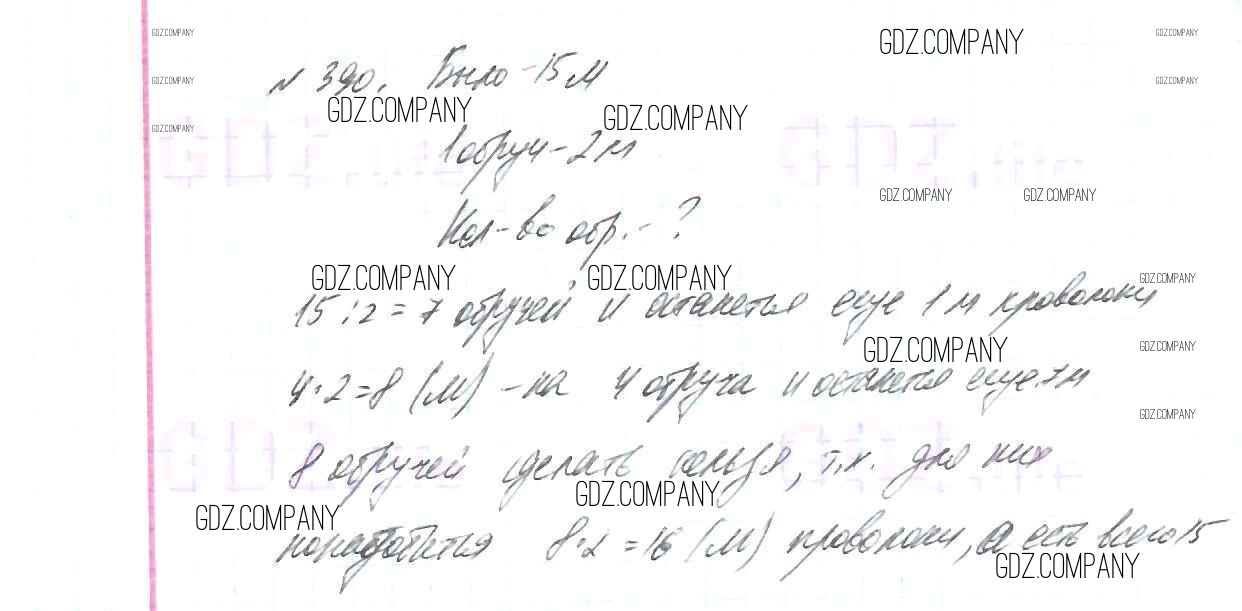 GDZ.COMPANY GDZ.COMPANY GDZ.COMPANY
№ 390. Было - 15 м
GDZ.COMPANY GDZ.COMPANY
GDZ.COMPANY GDZ.COMPANY GDZ.COMPANY
1 обруч - 2 м
Кол-во обр. - ?
GDZ.COMPANY GDZ.COMPANY
GDZ.COMPANY GDZ.COMPANY GDZ.COMPANY
15 : 2 = 7 обручей и останется еще 1 м проволоки
GDZ.COMPANY GDZ.COMPANY
4 · 2 = 8 (м) - на 4 обруча и останется еще 7 м
GDZ.COMPANY
8 обручей сделать нельзя, т.к. для них
GDZ.COMPANY GDZ.COMPANY
понадобится 8 · 2 = 16 (м) проволоки, а есть всего 15
GDZ.COMPANY